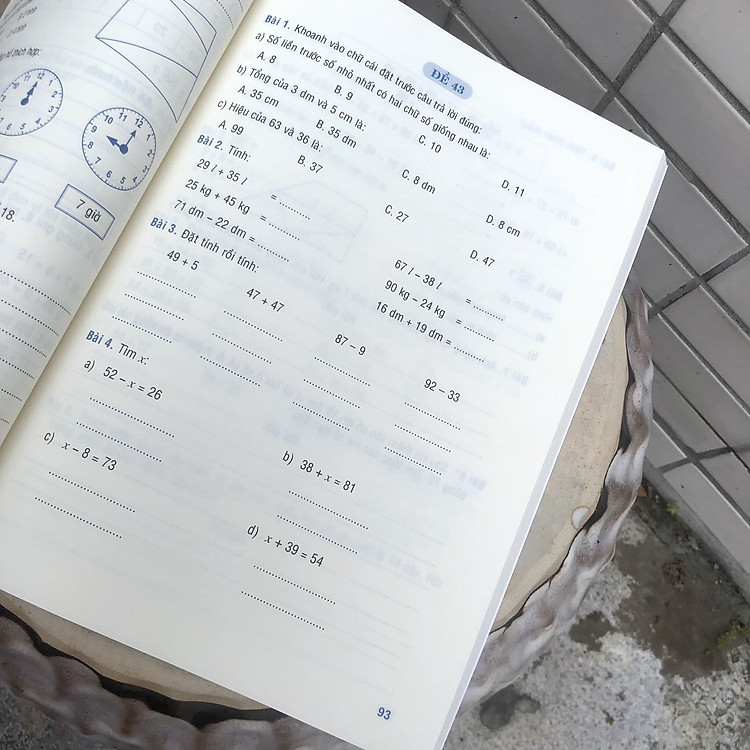 7 giờ
18.
ĐỀ 43
Bài 1. Khoanh vào chữ cái đặt trước câu trả lời đúng:
a) Số liền trước số nhỏ nhất có hai chữ số giống nhau là:
A. 8 B. 9 C. 10 D. 11
b) Tổng của 3 dm và 5 cm là:
A. 35 cm B. 35 dm C. 8 dm D. 8 cm
c) Hiệu của 63 và 36 là:
A. 99 B. 37 C. 27 D. 47
Bài 2. Tính:
29 l + 35 l = ......... 67 l – 38 l = .........
25 kg + 45 kg = ......... 90 kg – 24 kg = .........
71 dm – 22 dm = ......... 16 dm + 19 dm = .........
Bài 3. Đặt tính rồi tính:
49 + 5 47 + 47 87 – 9 92 – 33
Bài 4. Tìm x:
a) 52 – x = 26 b) 38 + x = 81
c) x – 8 = 73 d) x + 39 = 54
93